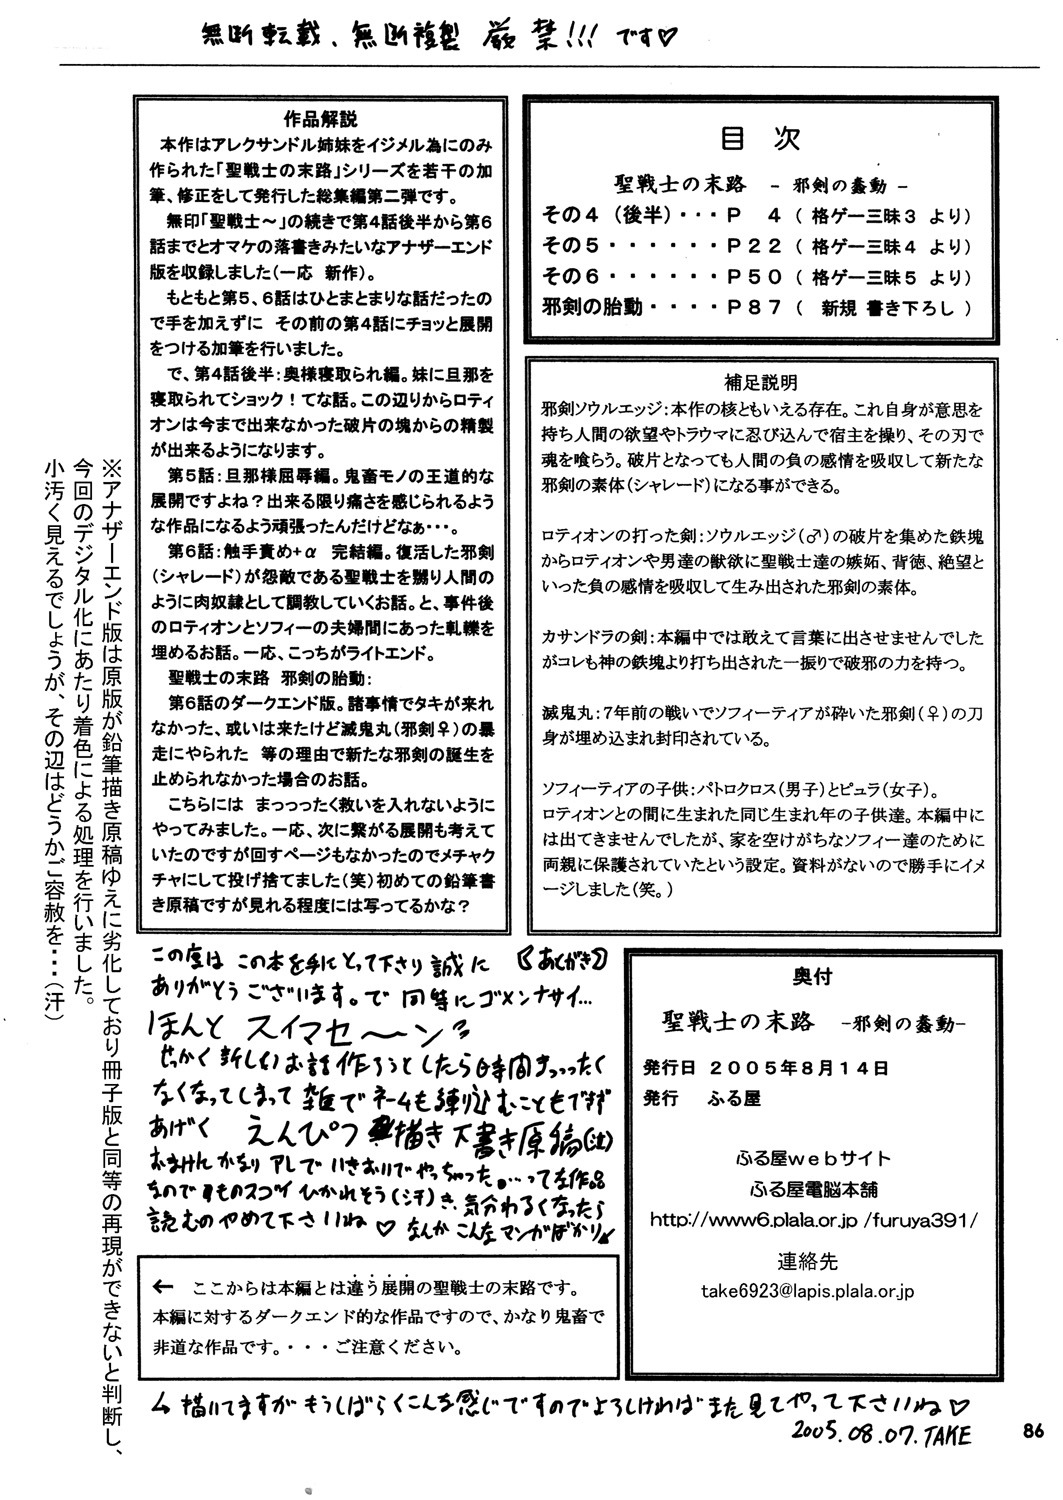 無断転載、無断複製 厳禁!!! です♡
作品解説
本作はアレクサンドル姉妹をイジメル為にのみ
作られた「聖戦士の末路」シリーズを若干の加
筆、修正をして発行した総集編第二弾です。
無印「聖戦士～」の続きで第4話後半から第6
話までとオマケの落書きみたいなアナザーエンド
版を収録しました(一応 新作)。
もともと第5、6話はひとまとまりな話だったの
で手を加えずに その前の第4話にチョッと展開
をつける加筆を行いました。
で、第4話後半:奥様寝取られ編。妹に旦那を
寝取られてショック！てな話。この辺りからロティ
オンは今まで出来なかった破片の塊からの精製
が出来るようになります。
第5話:旦那様屈辱編。鬼畜モノの王道的な
展開ですよね？出来る限り痛さを感じられるよう
な作品になるよう頑張ったんだけどなぁ・・・。
第6話:触手責め+α 完結編。復活した邪剣
(シャレード)が怨敵である聖戦士を嬲り人間の
ように肉奴隷として調教していくお話。と、事件後
のロティオンとソフィーの夫婦間にあった軋轢を
埋めるお話。一応、こっちがライトエンド。
聖戦士の末路 邪剣の胎動:
第6話のダークエンド版。諸事情でタキが来れ
なかった、或いは来たけど滅鬼丸(邪剣♀)の暴
走にやられた 等の理由で新たな邪剣の誕生を
止められなかった場合のお話。
こちらには まっっったく救いを入れないように
やってみました。一応、次に繋がる展開も考えて
いたのですが回すページもなかったのでメチャク
チャにして投げ捨てました(笑)初めての鉛筆書
き原稿ですが見れる程度には写ってるかな？
目 次
聖戦士の末路 - 邪剣の蠢動 -
その4 (後半)・・・P 4 ( 格ゲー三昧3 より)
その5・・・・・・P22 ( 格ゲー三昧4 より)
その6・・・・・・P50 ( 格ゲー三昧5 より)
邪剣の胎動・・・・P87 ( 新規 書き下ろし )
補足説明
邪剣ソウルエッジ:本作の核ともいえる存在。これ自身が意思を
持ち人間の欲望やトラウマに忍び込んで宿主を操り、その刃で
魂を喰らう。破片となっても人間の負の感情を吸収して新たな
邪剣の素体(シャレード)になる事ができる。
ロティオンの打った剣:ソウルエッジ(♂)の破片を集めた鉄塊
からロティオンや男達の獣欲に聖戦士達の嫉妬、背徳、絶望と
いった負の感情を吸収して生み出された邪剣の素体。
カサンドラの剣:本編中では敢えて言葉に出させませんでした
がコレも神の鉄塊より打ち出された一振りで破邪の力を持つ。
滅鬼丸:7年前の戦いでソフィーティアが砕いた邪剣(♀)の刀
身が埋め込まれ封印されている。
ソフィーティアの子供:パトロクロス(男子)とピュラ(女子)。
ロティオンとの間に生まれた同じ生まれ年の子供達。本編中に
は出てきませんでしたが、家を空けがちなソフィー達のために
両親に保護されていたという設定。資料がないので勝手にイメ
ージしました(笑。)
※アナザーエンド版は原版が鉛筆描き原稿ゆえに劣化しており冊子版と同等の再現ができないと判断し、
今回のデジタル化にあたり着色による処理を行いました。
小汚く見えるでしょうが、その辺はどうかご容赦を・・・(汗)
《あとがき》
この度は この本を手にとって下さり 誠に
ありがとうございます。で 同時にゴメンナサイ…
ほんと スイマセ～ン
せっかく新しいお話作ろうとしたら時間まっったく
なくなってしまって 雑でネームも練り込むこともできず
あげく えんぴつ 描き下書き原稿(泣)
おまけん かなりアレでいきおいでやっちゃった…って な作品
なので ものスゴイ ひかれそう(汗)き、気分わるくなったら
読むのやめて下さいね♡ なんか こんなマンガばかり↙
← ここからは本編とは違う展開の聖戦士の末路です。
本編に対するダークエンド的な作品ですので、かなり鬼畜で
非道な作品です。・・・ご注意ください。
描いてますが もうしばらくこんな感じですのでよろしければ また 見てやって下さいね♡
2005.08.07.TAKE
奥付
聖戦士の末路 -邪剣の蠢動-
発行日 2005年8月14日
発行 ふる屋
ふる屋webサイト
ふる屋電脳本舗
http://www6.plala.or.jp /furuya391/
連絡先
take6923@lapis.plala.or.jp
86